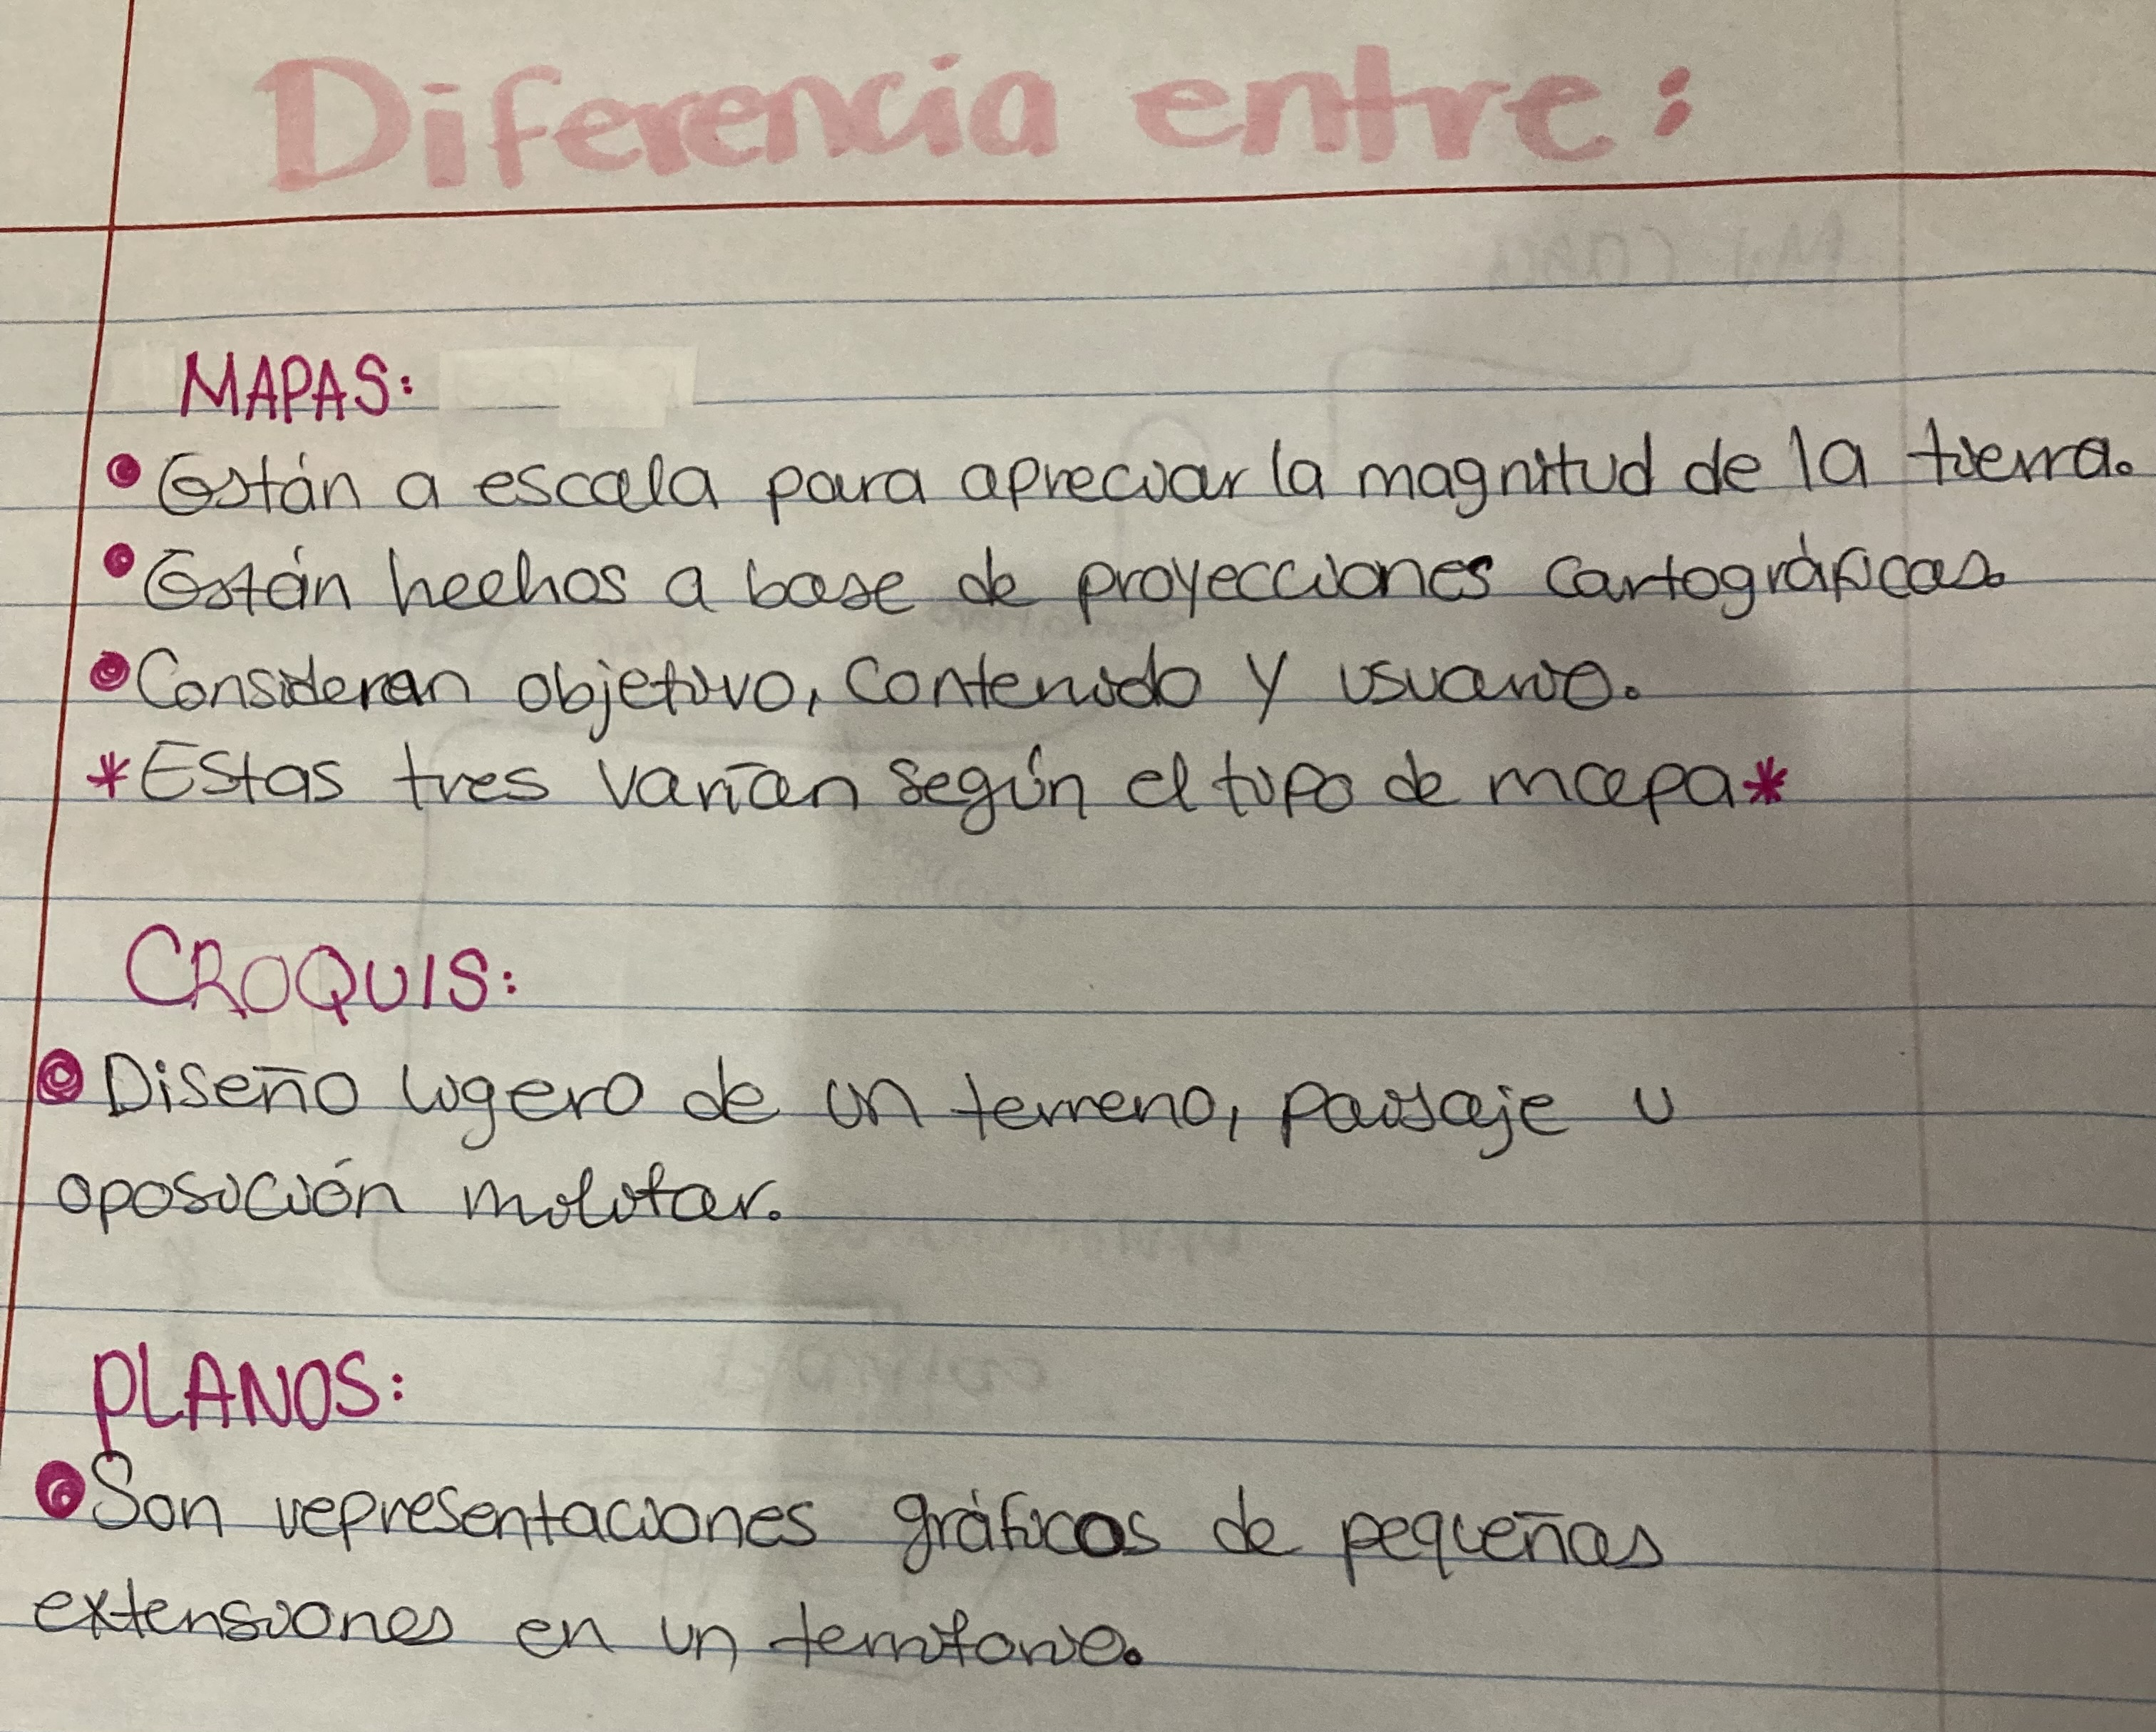 Diferencia entre:
MAPAS:
Están a escala para apreciar la magnitud de la tierra.
Están hechos a base de proyecciones cartográficas.
Consideran objetivo, contenido y usuario.
*Estas tres varían según el tipo de mapa*
CROQUIS:
Diseño ligero de un terreno, paisaje u
oposición militar.
PLANOS:
Son representaciones gráficas de pequeñas
extensiones en un territorio.